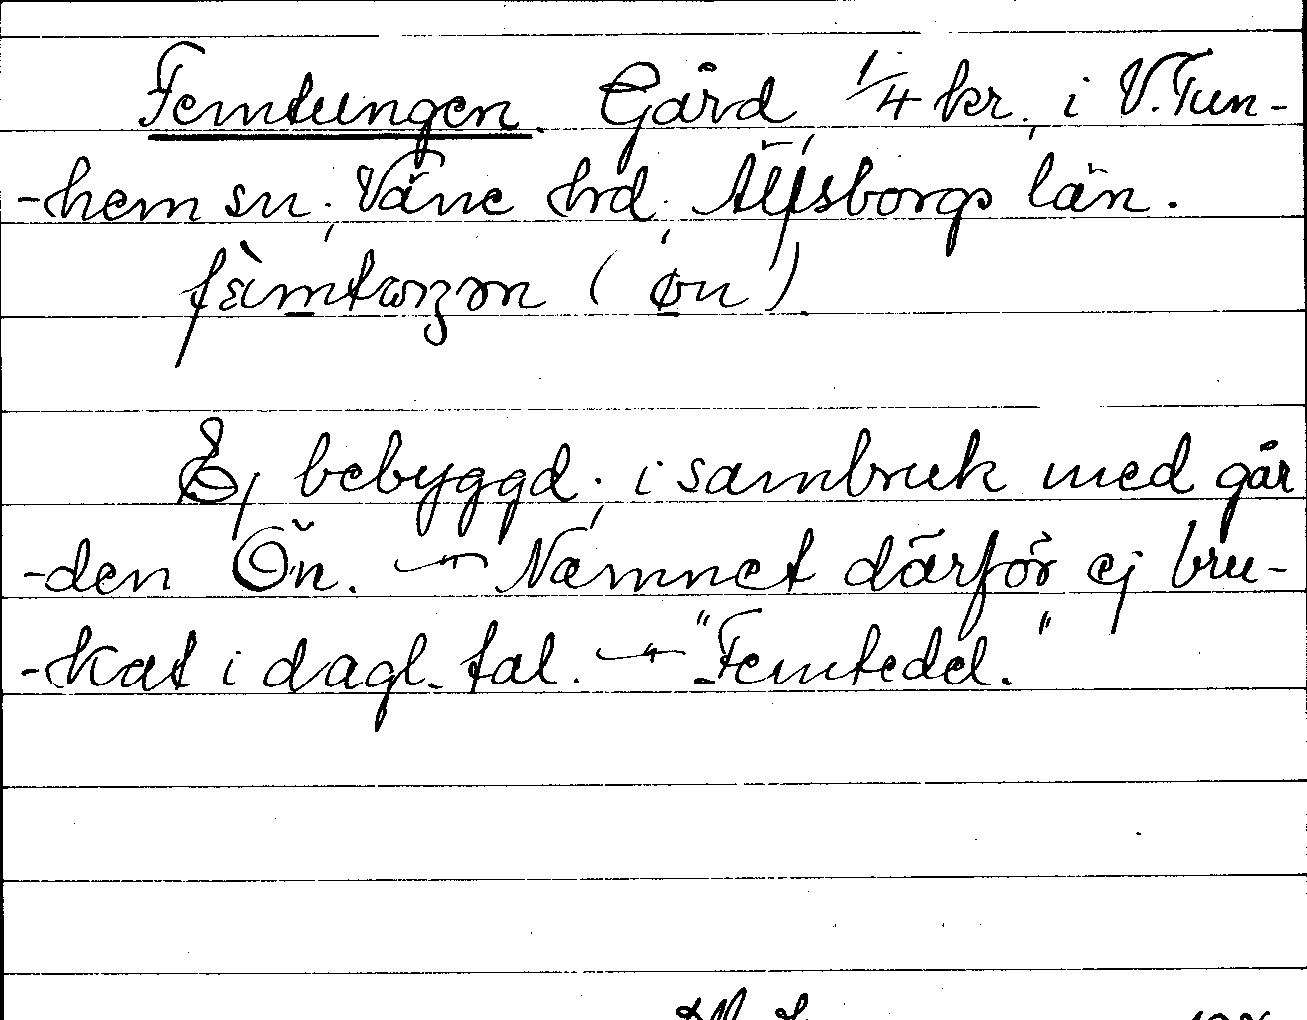 Femtungen. Gård, 1/4 kr., i V. Tun-
-hem sn; Väne hrd; Älfsborgs län.
( øn ).
Ej bebyggd; i sambruk med går
-den Ön. — Namnet därför ej bru-
-kat i dagl. tal. — "Femtedel."